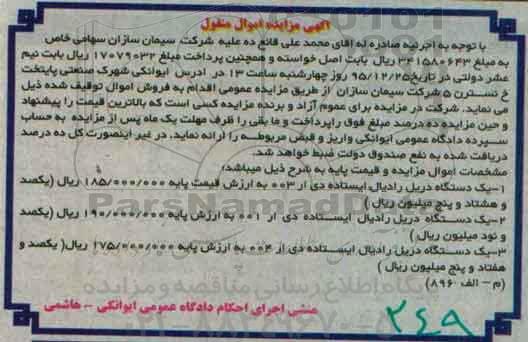 آگهی مزایده اموال منقول
با توجه به اجرئیه صادره له آقای محمد علی قانع ده علیه شرکت سیمان سازان سهامی خاص
به مبلغ ۳۴۱۵۸۰۶۴۳ ریال بابت اصل خواسته و همچنین پرداخت مبلغ ۱۷۰۷۹۰۳۲ ریال بابت نیم
عشر دولتی در تاریخ ۹۵/۱۲/۲۵ روز چهارشنبه ساعت ۱۳ در ادرس ایوانکی شهرک صنعتی پایتخت
خ نسترن ۵ شرکت سیمان سازان از طریق مزایده عمومی اقدام به فروش اموال توقیف شده ذیل
می نماید. شرکت در مزایده برای عموم آزاد و برنده مزایده کسی است که بالاترین قیمت را پیشنهاد
و حین مزایده ده درصد مبلغ فوق را پرداخت و ما بقی را ظرف مهلت یک ماه پس از مزایده به حساب
سپرده دادگاه عمومی ایوانکی واریز و قبض مربوطه را ارائه نماید. در غیر اینصورت کل ده درصد
دریافت شده به نفع صندوق دولت ضبط خواهد شد.
مشخصات اموال مزایده و قیمت پایه به شرح ذیل میباشد؛
۱-یک دستگاه دریل رادیال ایستاده دی ار ۰۰۳ به ارزش قیمت پایه ۱۸۵/۰۰۰/۰۰۰ ریال (یکصد
و هشتاد و پنج میلیون ریال)
۲-یک دستگاه دریل رادیال ایستاده دی ار ۰۰۱ به ارزش پایه ۱۹۰/۰۰۰/۰۰۰ ریال (یکصد
و نود میلیون ریال)
۳-یک دستگاه دریل رادیال ایستاده دی ار ۰۰۴ به ارزش پایه ۱۷۵/۰۰۰/۰۰۰ ریال( یکصد و
هفتاد و پنج میلیون ریال )
(م - الف ۸۹۶۰)
منشی اجرای احکام دادگاه عمومی ایوانکی - هاشمی
۲۴۹
ParsNamadD
پایگاه اطلاع رسانی مناقصه و مزایده